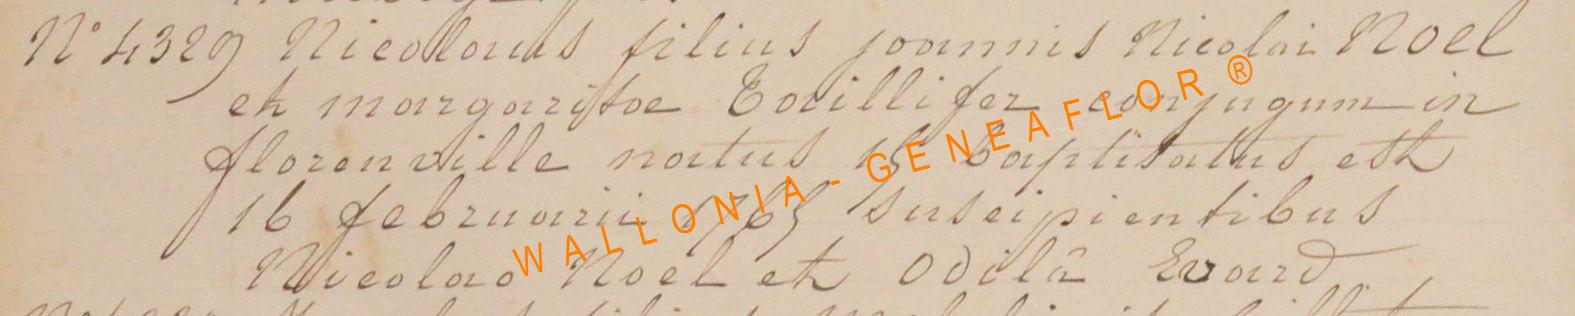 N° 4329 Nicolaus filius joannis Nicolai Noel
et margaritae Taillifer conjugum in
florenville natus 15 baptisatus est
16 februarii 1765 suscipientibus
Nicolao Noel et Odilâ Evard
WALLONIA - GENEAFLOR ®